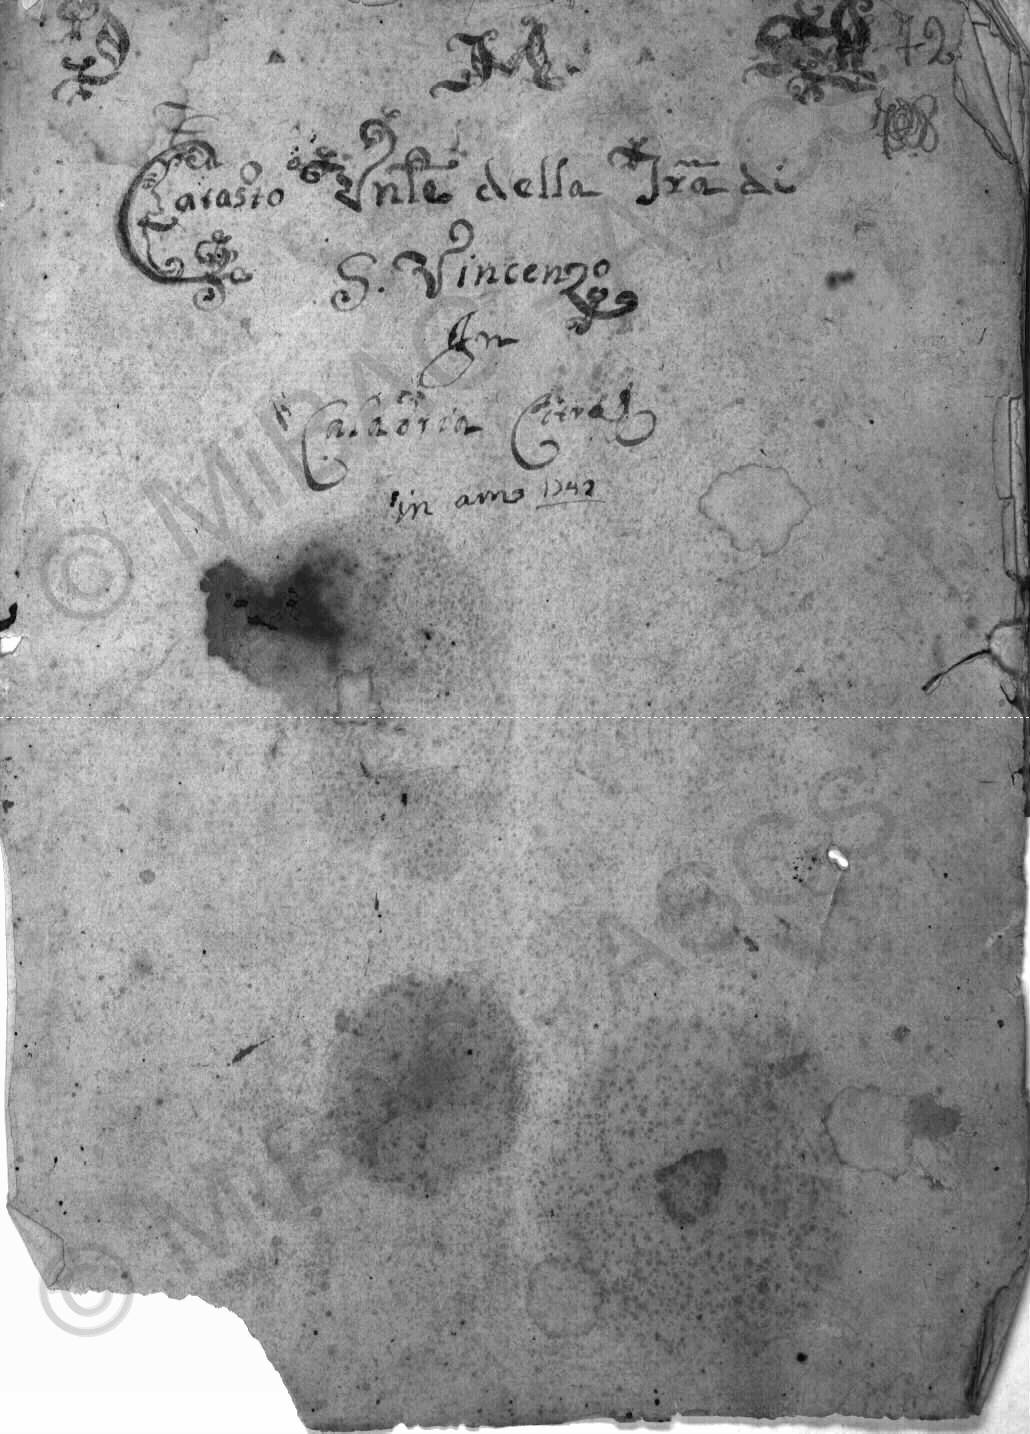 M. 72
Catasto Vnle della Trã di
S. Vincenzo
In
Calabria Citra
in anno 1742
© MiBAC - ASCS
© MiBAC - ASCS